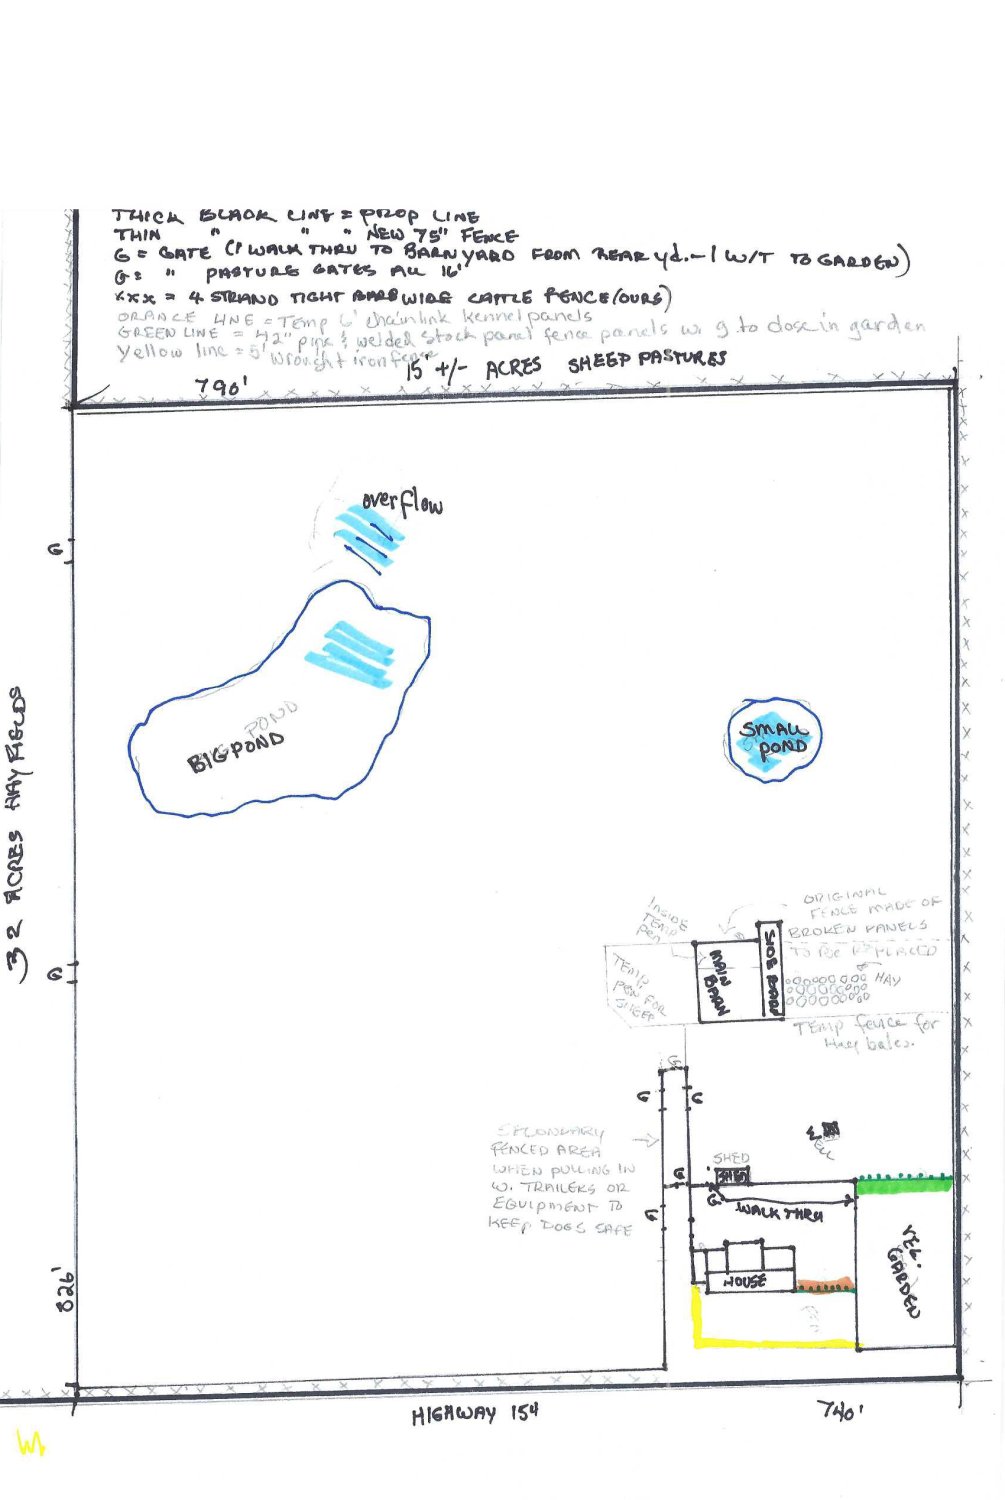 THICK BLACK LINE = PROP LINE
THIN " " " NEW 75" FENCE
G = GATE (1 WALK THRU TO BARNYARD FROM REAR yd. - 1 W/T TO GARDEN)
G = " PASTURE GATES ALL 16'
xxx = 4 STRAND TIGHT BARBWIRE CATTLE FENCE (OURS)
ORANGE LINE = Temp 6' chainlink kennel panels
GREEN LINE = 42" pipe & welded stock panel fence panels w. g to close in garden
Yellow line = 5' wrought iron fence
15 +/- ACRES SHEEP PASTURES
790'
overflow
G
BIG POND
POND
SMALL
POND
32 ACRES HAYFIELDS
G
ORIGINAL
FENCE MADE OF
BROKEN PANELS
TO BE REPLACED
INSIDE
TEMP
PEN
MAIN
BARN
SIDE BARN
HAY
TEMP.
PEN FOR
SHEEP
TEMP fence for
Hay bales.
G
G
G
SECONDARY
FENCED AREA
WHEN PULLING IN
W. TRAILERS OR
EQUIPMENT TO
KEEP DOGS SAFE
SHED
WELL
G
G
G
WALK THRU
VEG.
GARDEN
HOUSE
826'
HIGHWAY 154
740'